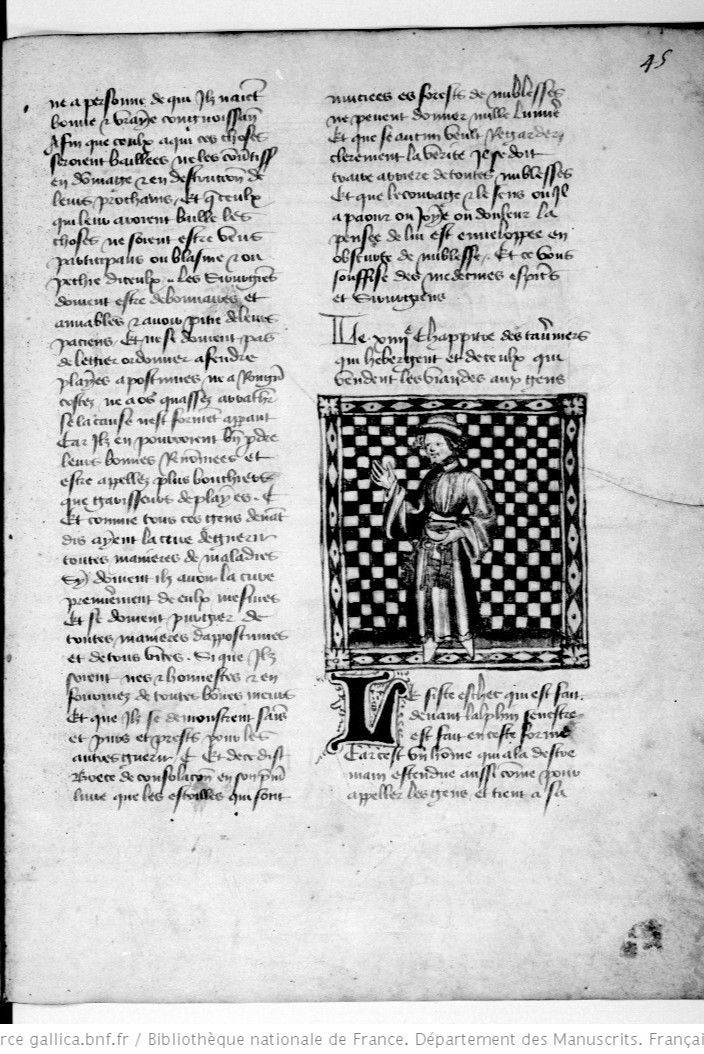 45
ne a personne de qui Ilz naiēt
bonne & vraye congnoissan
Afin que ceulx a qui ces choses
seroient baillees ne les
en dōmage & en destruction de
leurs prochains. Et q̄ ceulx
qui leur avoient baille les
choses ne soient estre
participans ou blasme & ou
pechie diceulx. Les Sirurgiēs
doivent estre debonnaires et
amiables & avoir pitie de leurs
paciens Et ne se doivent pas
de legier ordonner a fendre
playes apostumes ne a
costez ne a os quassez
se la cause nest
Car Ilz en pourroient bn̄ pdre
leurs bonnes Rnōmees et
estre appellez plus bouchiers
que garisseurs de playes. C
Et comme tous ces gens devāt
dis ayent la cure de guerir
toutes manieres de maladies
Sy doivent ilz avoir la cure
premieremēt de eulx mesmes
Et se doivent purgier de
toutes manieres dappostumes
et de tous vices. Si que Ilz
soient nes & honnestes & en
de toutes bōnes meurs
Et que Ilz se demonstrent sains
et purs et prests pour les
autres guerir C Et de ce dist
Boece de consolacōn en son pm̄
livre que les estoilles qui sont
muciees es forests de nublesses
ne pevent donner nulle lumie
Et que se aucun veult Regarder
clerement la verite Il se doit
de toutes nublesses
Et que le courage & le sens ou Il
a paour ou Joye ou douleur la
pensee de lui est envelopee en
obscurte de nublesse. Et ce vous
souffise des medecines espiciers
et Sirurgiens
Le xiiiie Chappitre des tav̄niers
qui hebergent et de ceulx qui
vendent les viandes aux gens
Le siste eschet qui est fait
devant lalphin senestre
est fait en ceste forme
Car cest un hōme qui a la destre
main estendue aussi cōme pour
appeller les gens et tient a sa
rce gallica.bnf.fr / Bibliothèque nationale de France. Département des Manuscrits. Françai